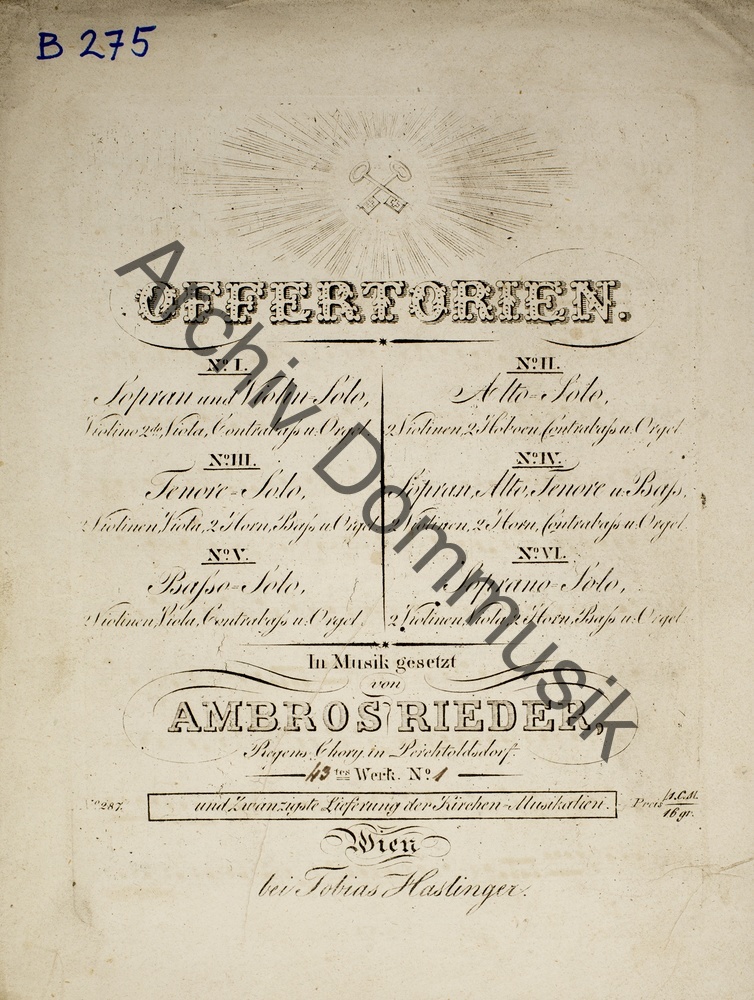 B 275
OFFERTORIEN.
No. I.
Sopran und Violin-Solo,
Violino 2do, Viola, Contrabaſs u. Orgel
No. II.
Alto-Solo,
2 Violinen, 2 Hoboen, Contrabaſs u. Orgel
No. III.
Tenore-Solo,
2 Violinen, Viola, 2 Horn, Baſs u. Orgel
No. IV.
Sopran, Alto, Tenore u. Baſs,
2 Violinen, 2 Horn, Contrabaſs u. Orgel
No. V.
Baſso-Solo,
2 Violinen, Viola, Contrabaſs u. Orgel
No. VI.
Soprano-Solo,
2 Violinen, Viola, 2 Horn, Baſs u. Orgel
In Musik gesetzt
von
AMBROS RIEDER,
Regens Chory in Perchtoldsdorf.
43tes Werk. No. 1
No. 287.
und Zwanzigste Lieferung der Kirchen-Musikalien.
Preis f1.C.M.
16 gr.
Wien
bei Tobias Haslinger.
Archiv Dommusik